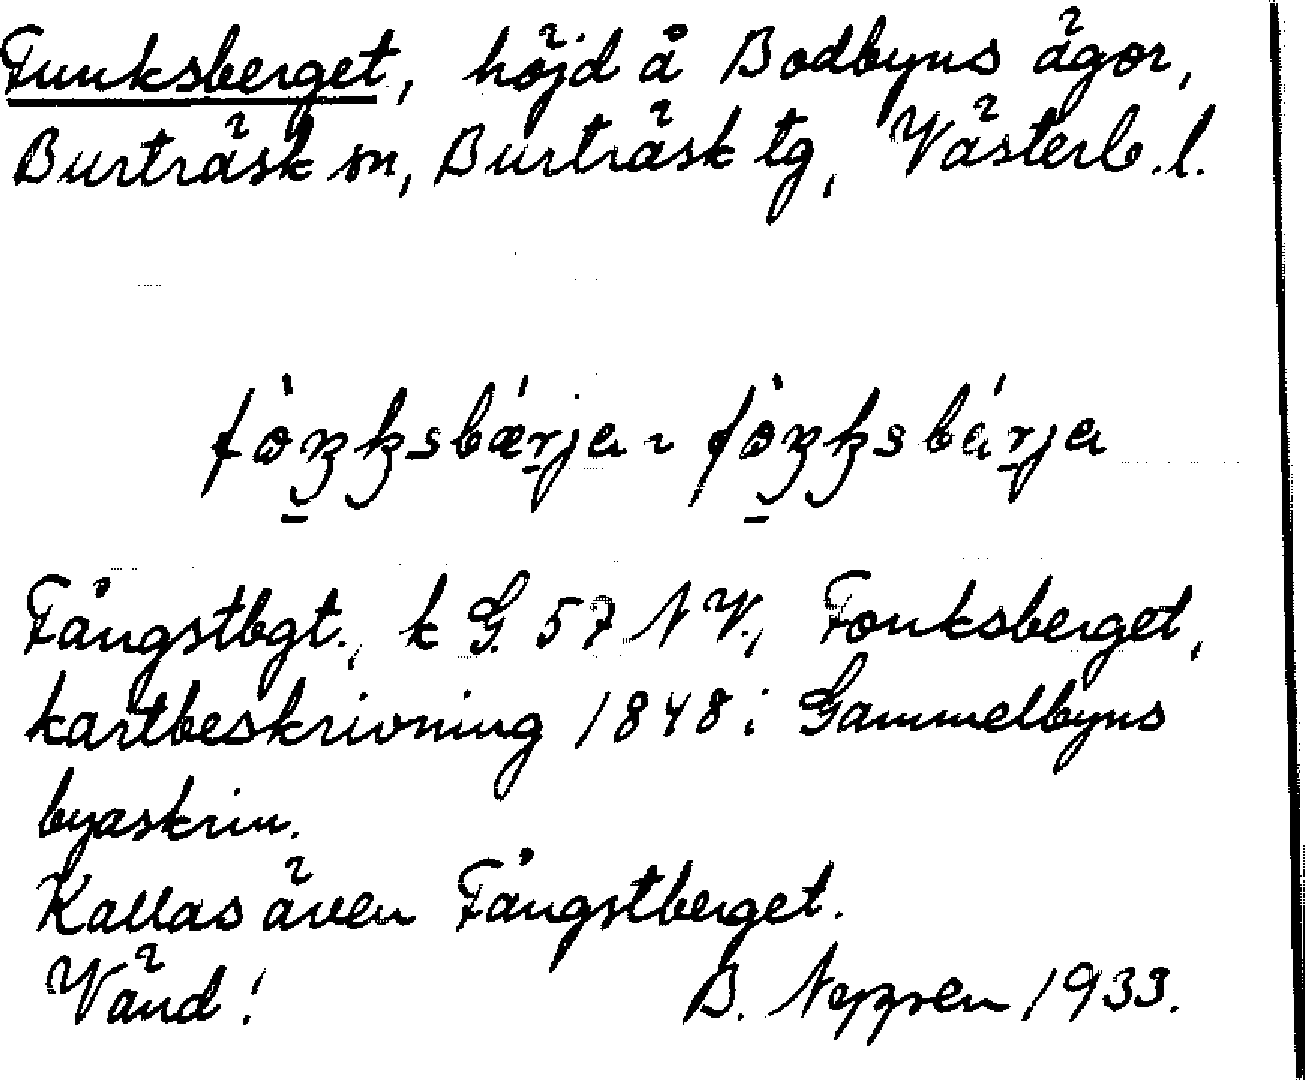 Funksberget, höjd å Bodbyns ägor,
Burträsk sn, Burträsk tg, Västerb. l.
Fångstbgt., k G. 57 NV., Fonksberget,
kartbeskrivning 1848 i Gammelbyns
byaskrin.
Kallas även Fångstberget.
Vänd! B. 1933.